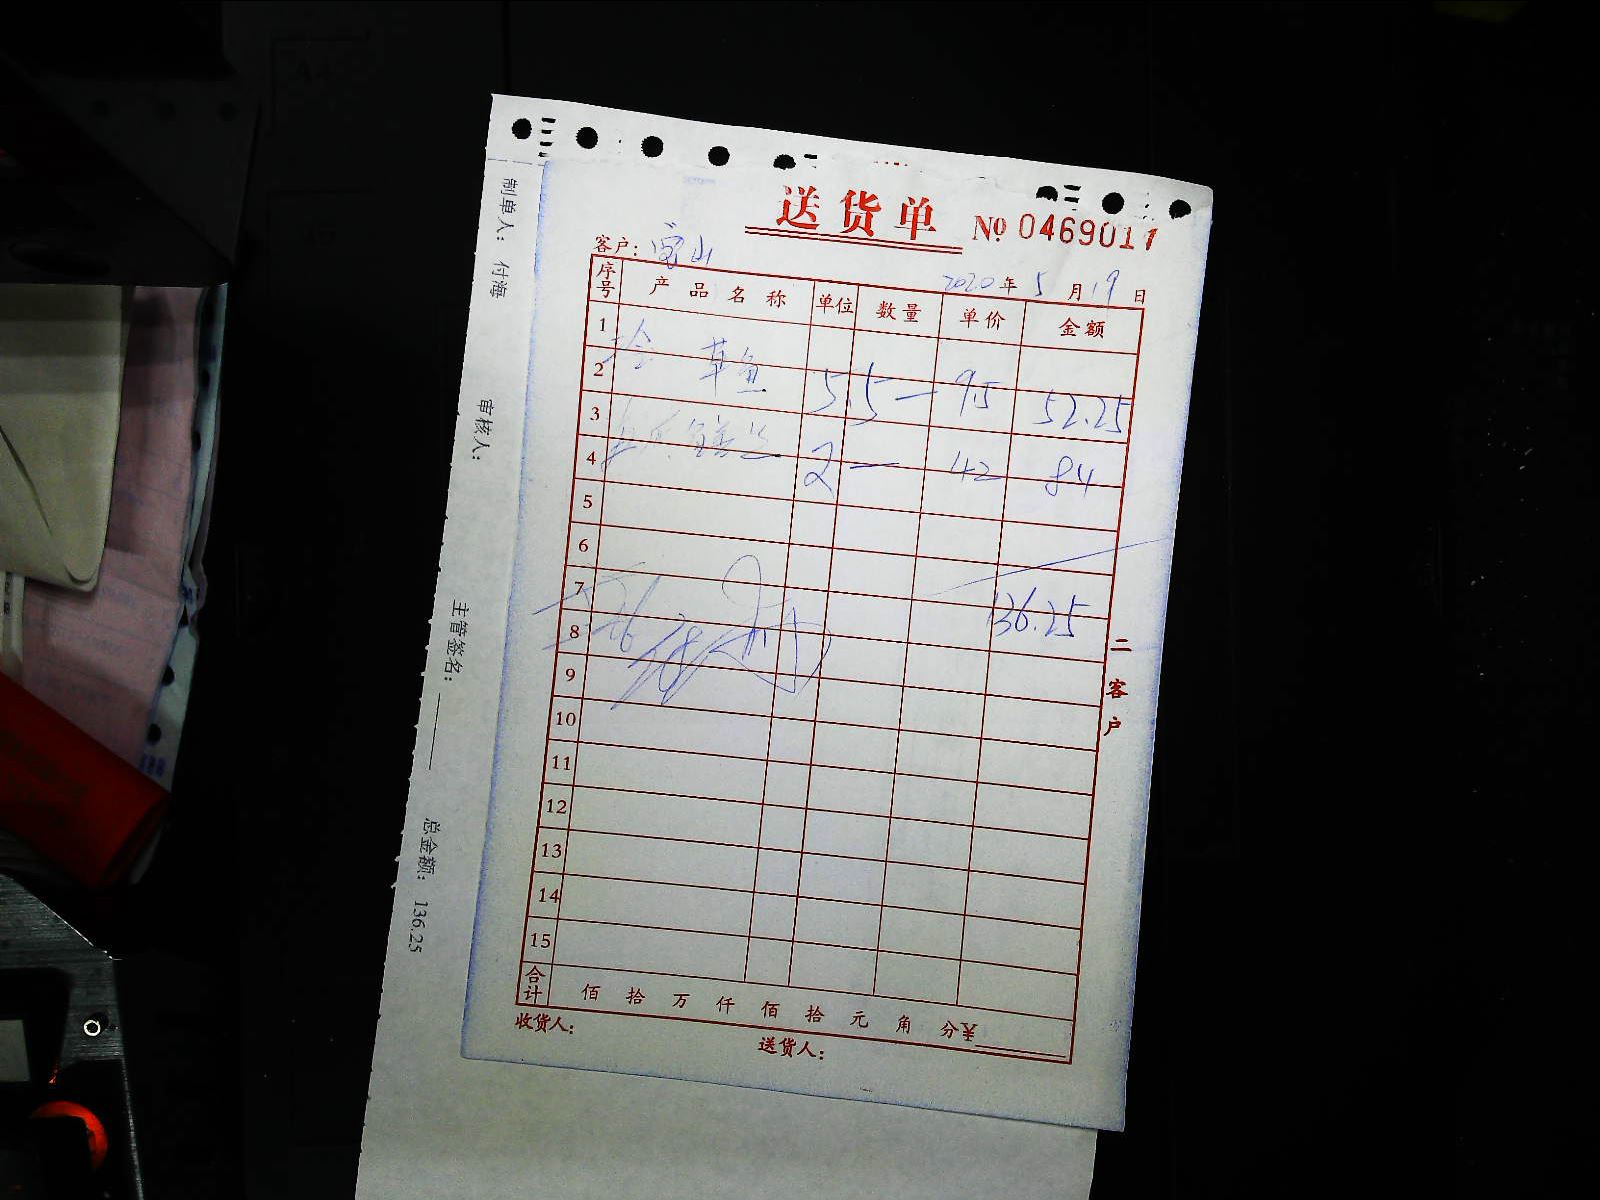 送货单 № 0469011
客户: 宝山
2020年5月19日
序号 产品名称 单位 数量 单价 金额
1
2 草鱼 5.5 — 9.5 52.25
3
4 2 — 42 84
5
6
7
136.25
8
9
10
11
12
13
14
15
合计 佰 拾 万 仟 佰 拾 元 角 分 ¥
收货人: 送货人:
二客户
制单人: 付海 审核人: 主管签名: 总金额: 136.25